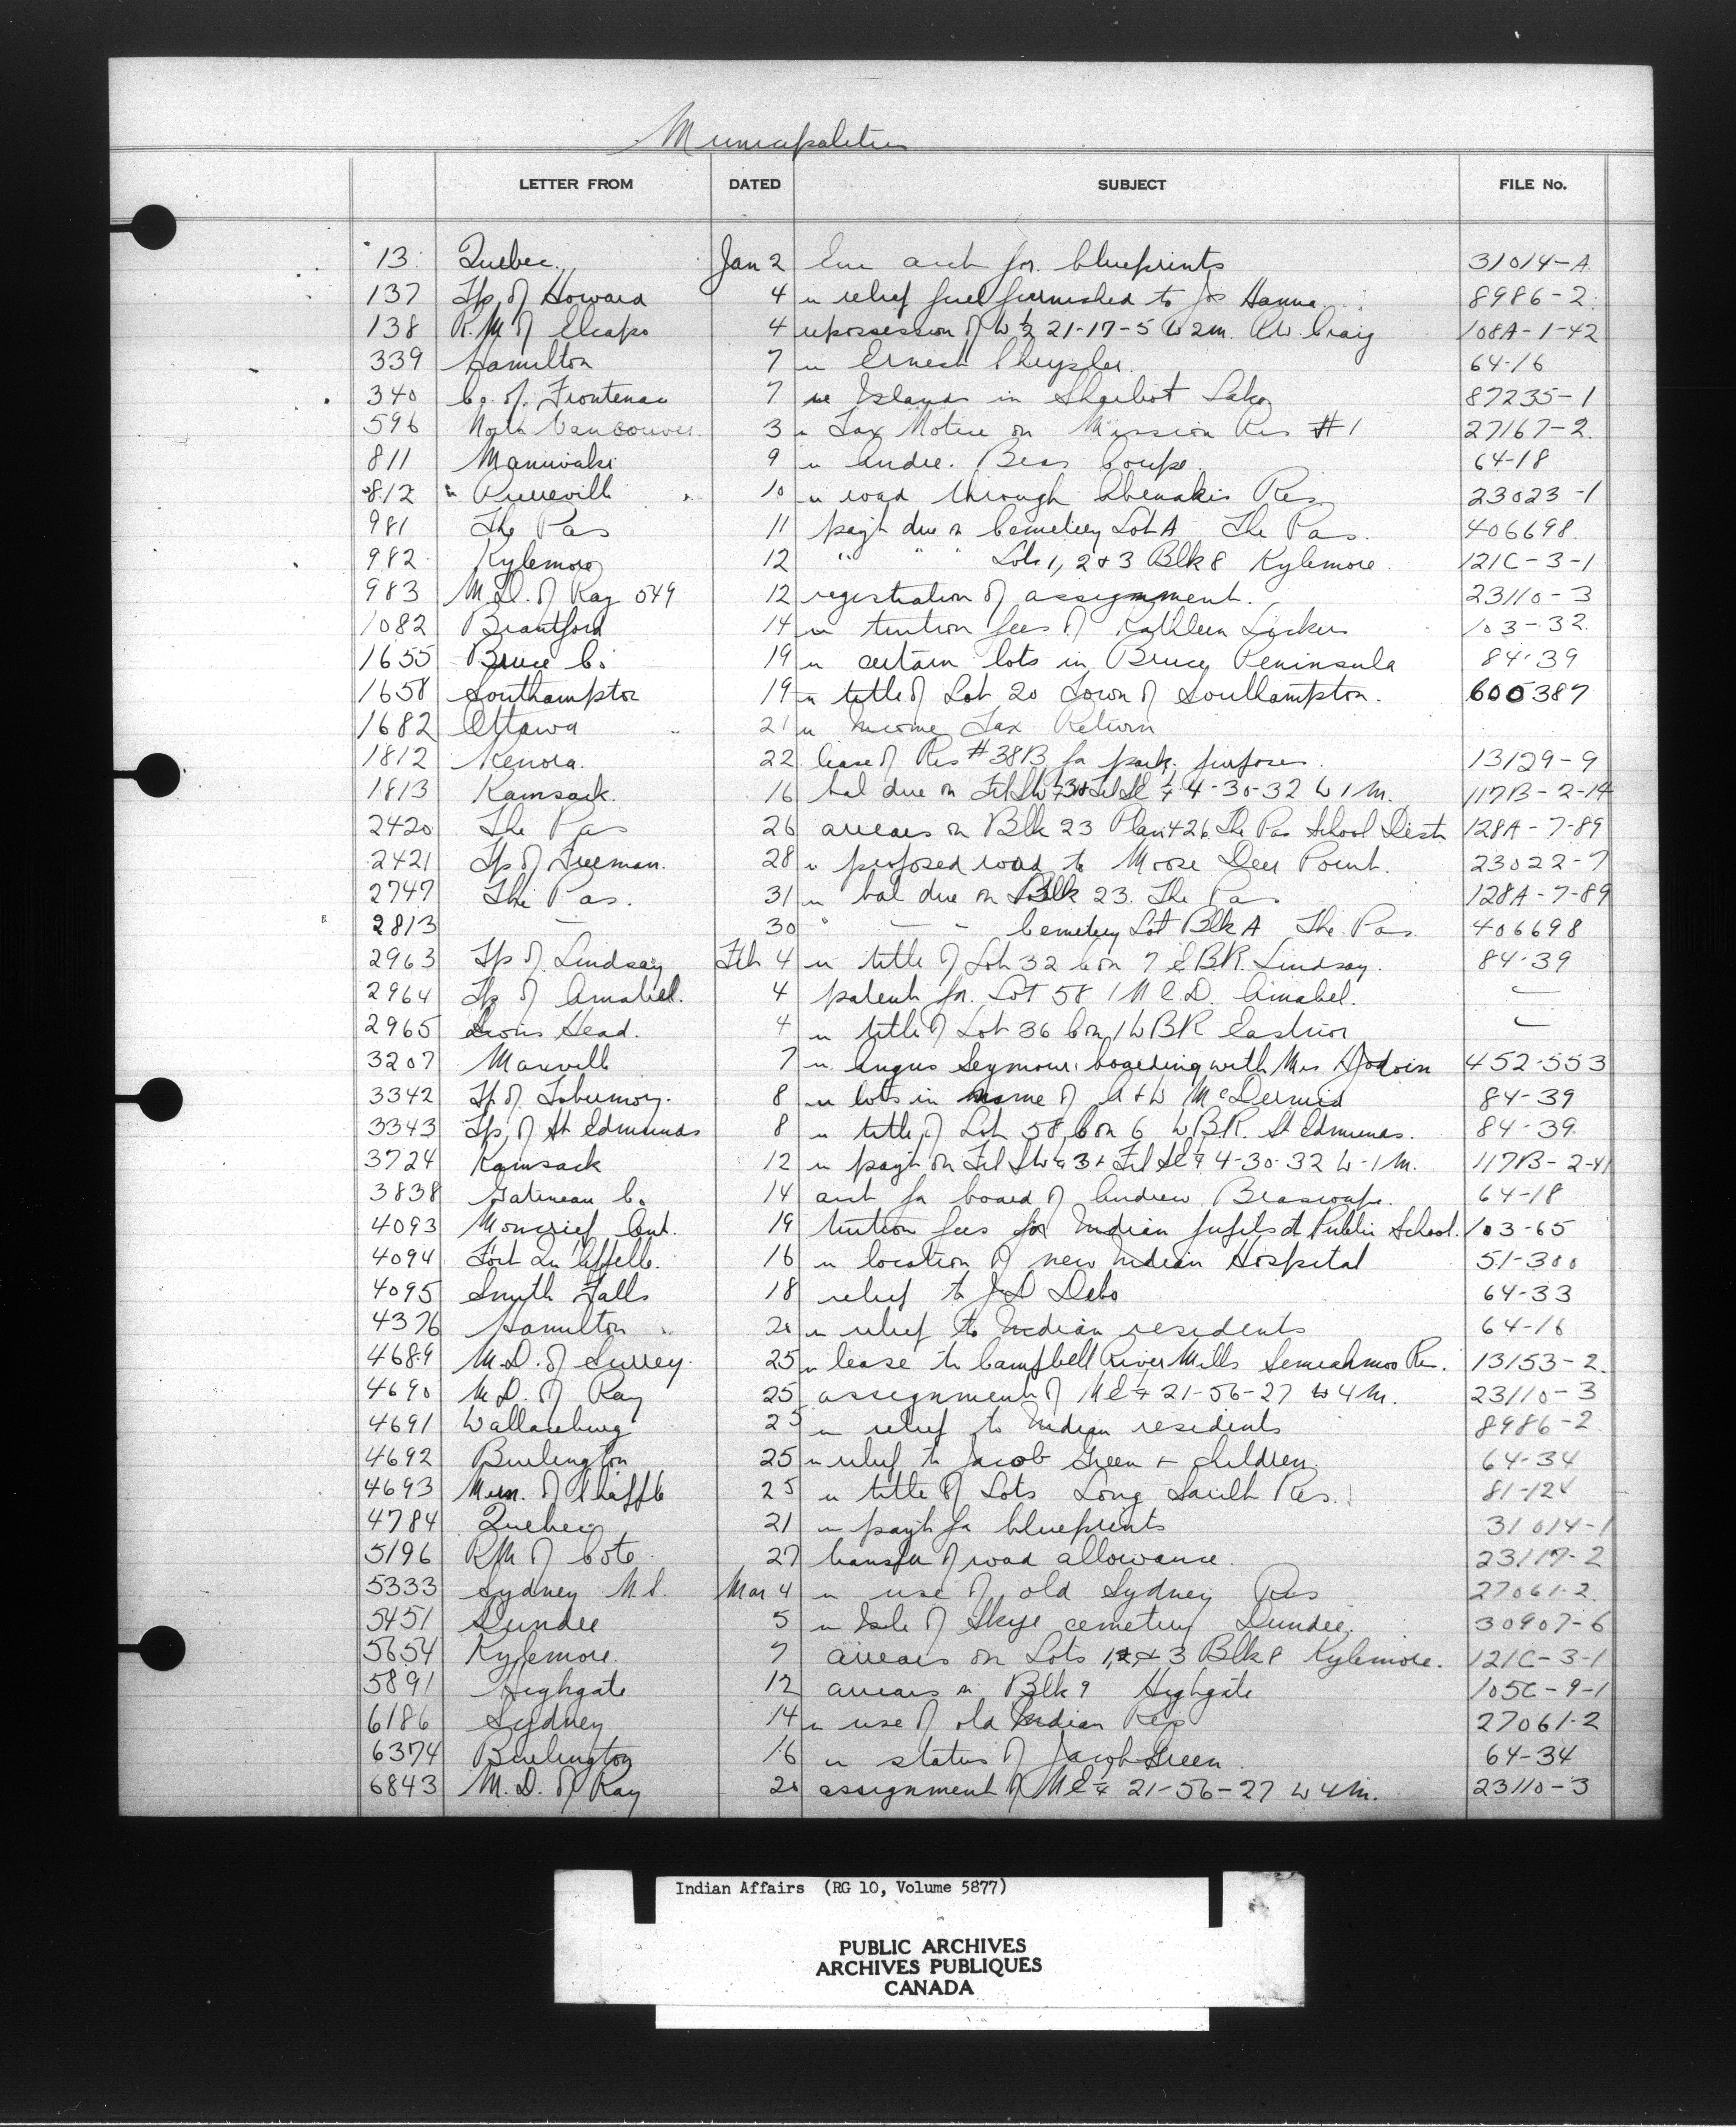 Municipalities
LETTER FROM DATED SUBJECT FILE No.
13 Quebec Jan 2 Enc acct for blueprints 31014-A
137 Tp. of Howard 4 re relief fuel furnished to Jos Hanna 8986-2
138 R.M of Elcapo 4 repossession of W ½ 21-17-5 W2m. R.W. Craig 108A-1-42
339 Hamilton 7 re Ernest Chrysler 64-16
340 Co. of Frontenac 7 re Islands in Sharbot Lake 87235-1
596 North Vancouver 3 re Tax Notice on Mission Res #1 27167-2
811 Maniwaki 9 re Andre. Beas Coupe 64-18
812 " Pierreville 10 re road through Abenakis Res 23023-1
981 The Pas 11 payt due on Cemetery Lot A The Pas. 406698
982 Kylemore 12 " " " Lots 1, 2 & 3 Blk 8 Kylemore 121C-3-1
983 M.D. of Ray 549 12 registration of assignment. 23110-3
1082 Brantford 14 re tuition fees of Kathleen Lickers 103-32
1655 Bruce Co. 19 re certain lots in Bruce Peninsula 84-39
1658 Southampton 19 re title of Lot 20 Town of Southampton. 600387
1682 Ottawa 21 re Income Tax Return
1812 Kenora. 22 lease of Res #38B for park purposes. 13129-9
1813 Kamsack. 16 bal due on Frl SW ¼ 3 & Frl SE ¼ 4-30-32 W1M. 117B-2-14
2420 The Pas 26 arrears on Blk 23 Plan 426 The Pas School Distr 128A-7-89
2421 Tp of Freeman. 28 re proposed road to Moose Deer Point. 23022-7
2747 The Pas. 31 re bal due on Blk 23. The Pas 128A-7-89
2813 — 30 " — - Cemetery Lot Blk A The Pas 406698
2963 Tp of Lindsay Feb 4 re title of Lot 32 Con 7 EBR. Lindsay. 84-39
2964 Tp of Amabel. 4 patent for Lot 58 1 NCD. Amabel. —
2965 Lions Head. 4 re title of Lot 36 Con 1 WBR Eastnor —
3207 Maxville 7 re Angus Seymour boarding with Mrs Hodoin 452-553
3342 Tp of Tobermory. 8 re lots in name of A & W McDermid 84-39
3343 Tp, of St Edmunds 8 re title of Lot 58, Con 6 WBR. St Edmunds. 84-39
3724 Kamsack 12 re payt on Frl SW ¼ 3 & Frl SE ¼ 4-30-32 W-1M. 117B-2-41
3838 Gatineau Co. 14 acct for board of Andrew Beascoupe. 64-18
4093 Moncrief Ont. 19 tuition fees for Indian pupils at Public School. 103-65
4094 Fort Qu'Appelle. 16 re location of new Indian Hospital 51-300
4095 Smith Falls 18 relief to J.D Debo 64-33
4376 Hamilton 20 re relief to Indian residents 64-16
4689 M.D. of Surrey. 25 re lease to Campbell River Mills Semiahmoo Res. 13153-2
4690 M.D. of Ray 25 assignment of NE ¼ 21-56-27 W4M. 23110-3
4691 Wallaceburg 25 re relief to Indian residents 8986-2
4692 Burlington 25 re relief to Jacob Green & children 64-34
4693 Mun. of Chapple 25 re title of Lots Long Sault Res. 81-124
4784 Quebec 21 re payt for blueprints 31014-1
5196 RM of Cote 27 transfer of road allowance. 23117-2
5333 Sydney N.S. Mar 4 re use of old Sydney Res 27061-2
5451 Dundee 5 re Isle of Skye cemetery Dundee. 30907-6
5654 Kylemore. 7 arrears on Lots 1, 2, & 3 Blk 8 Kylemore. 121C-3-1
5891 Highgate 12 arrears on Blk 9 Highgate 105C-9-1
6186 Sydney 14 re use of old Indian Res 27061-2
6374 Burlington 16 re status of Jacob Green 64-34
6843 M.D. of Ray 20 assignment of NE ¼ 21-56-27 W4M. 23110-3
Indian Affairs (RG 10, Volume 5877)
PUBLIC ARCHIVES
ARCHIVES PUBLIQUES
CANADA